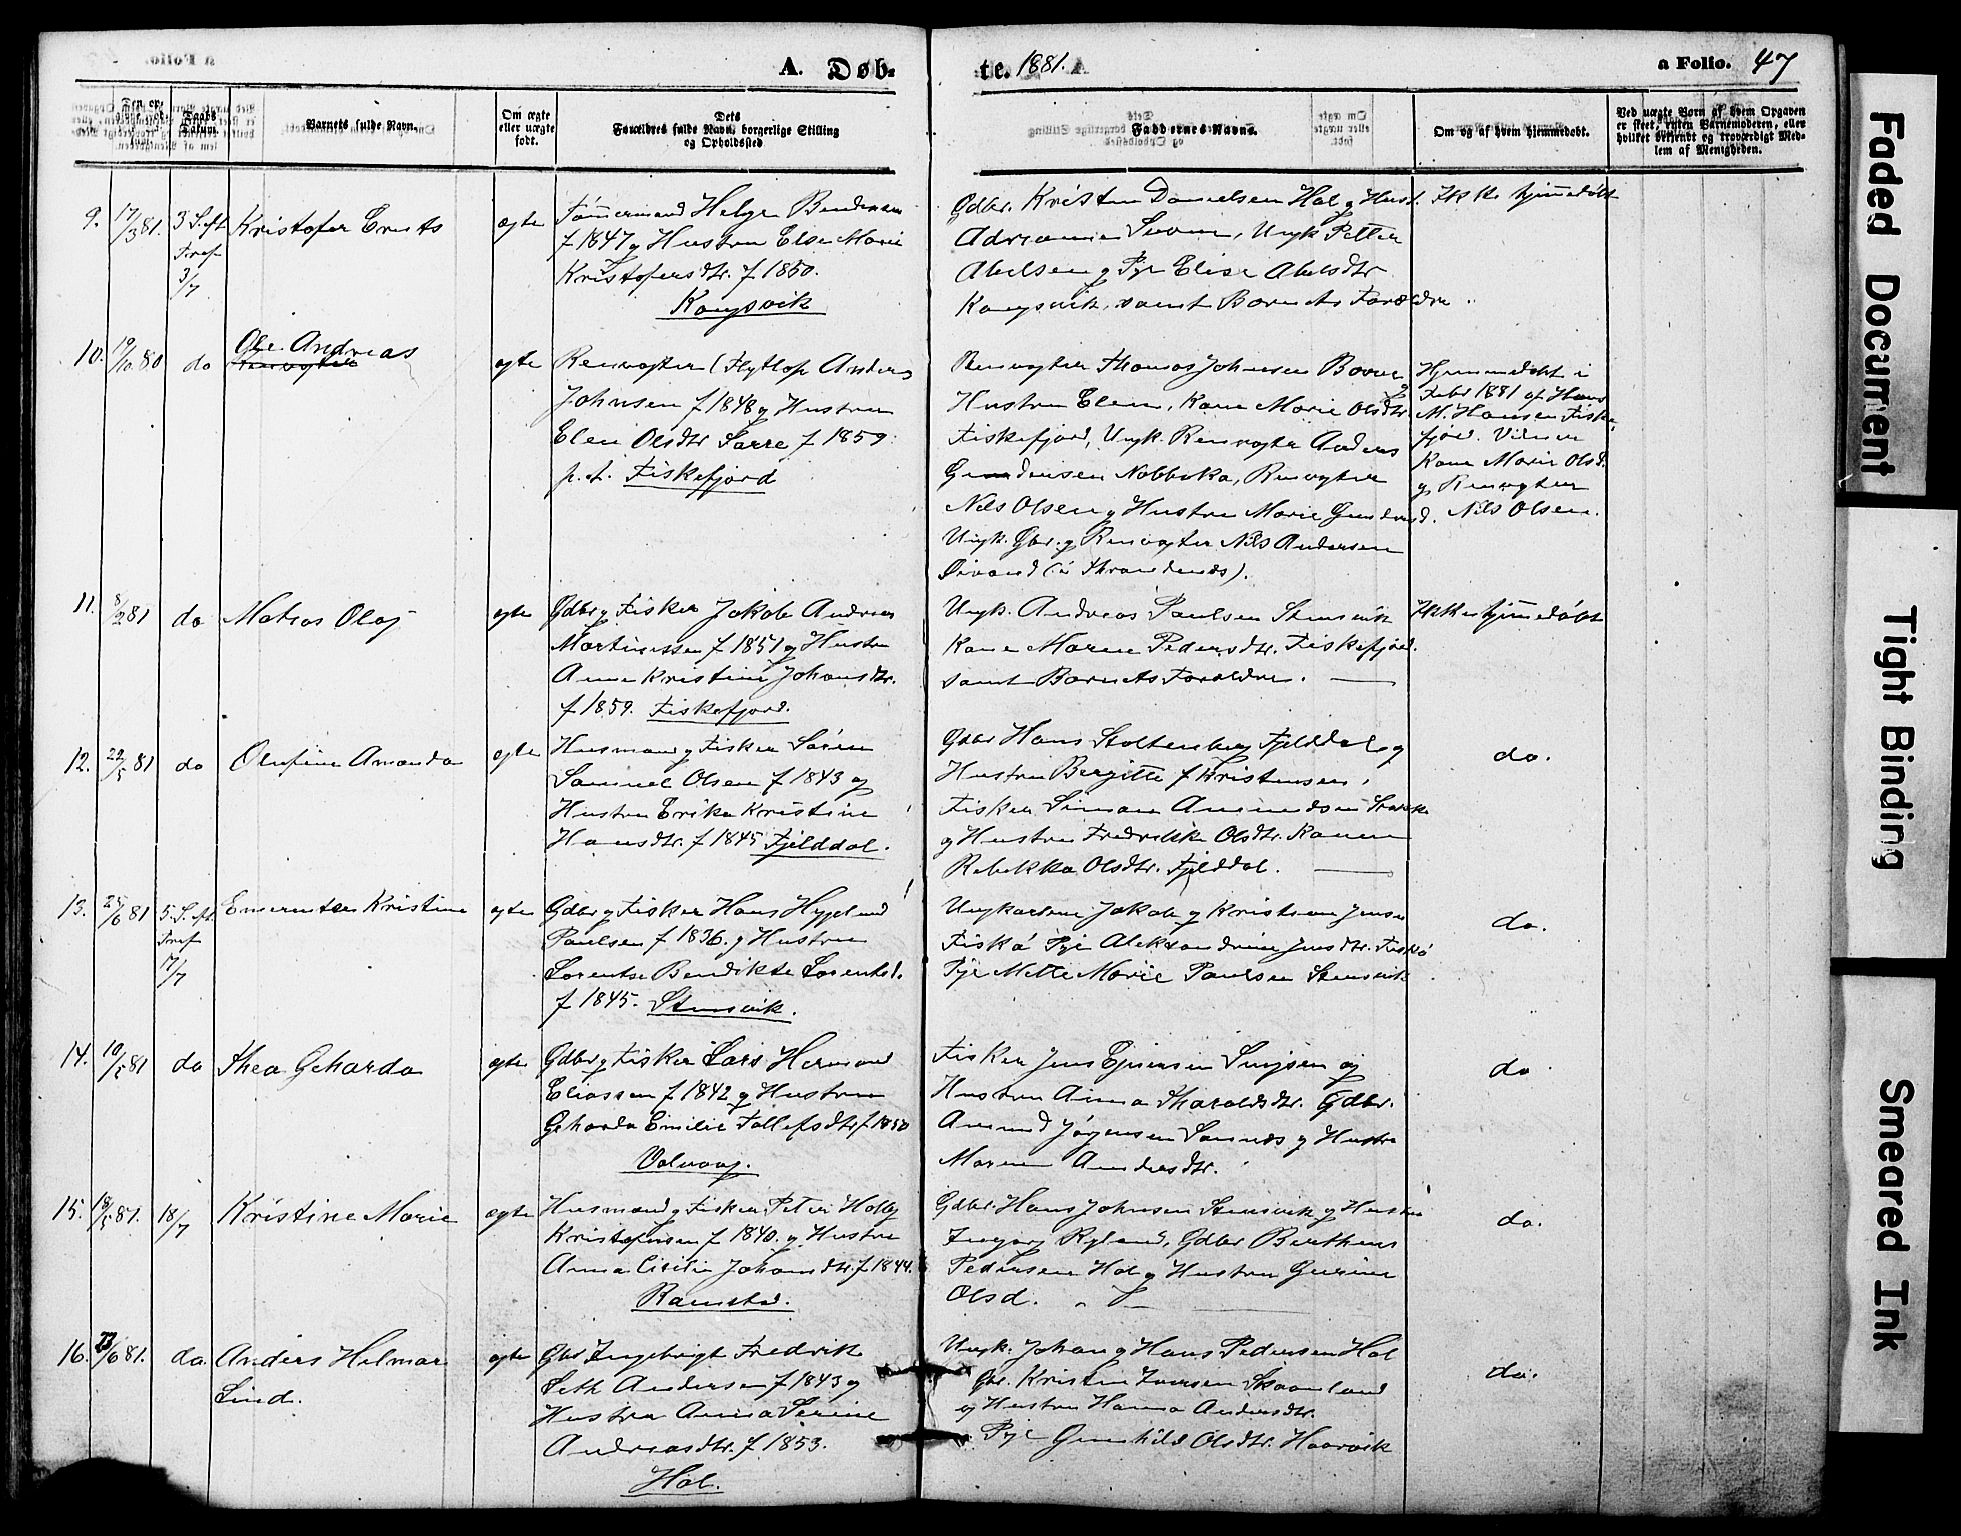 A. Døb-
te. 1881.
a Folio. 47
Daabs Datum.
Barnets fulde Navn.
Om ægte eller uægte født.
Dets Forældres fulde Navn, borgerlige Stilling og Opholdssted
Faddernes Navne.
Om og af hvem hjemmedøbt.
Ved uægte Børn af hvem Opgaven er skeet, enten Barnemoderen, eller hvilket bekjendt og troværdigt Medlem af Menigheden.
9. 17/3 81. 3 S. eft Tref 3/7 Kristofer Ernts ægte
Tømmermand Helge Bendiksen
f 1847 g Hustru Else Marie
Kristofersdtr. f 1850.
Kongsvik
Gdbr. Kristen Danielsen Hol g Hust.
Adriane, Ungk Petter
Abelsen g Pige Elise Abelsdtr
Kongsvik, samt Barnets Forældre
Ikke hjemmedøbt
10. 19/10 80 do Ole Andreas ægte
Renvogter (Flytlap Anders
Johnsen f 1848 g Hustru
Elen Olsdtr Sarre f 1859.
p.t. Fiskefjord
Renvogter Thomas Johnsen
Hustru Elen, Kone Marie Olsdtr.
Fiskefjord, Ungk. Renvogter Anders
Nobbuka, Renvogter
Nils Olsen g Hustru Marie
Ungk. Gbr. g Renvogter Nils Andersen
(i Throndenæs).
Hjemmedøbt i
Febr 1881 af Hans
M. Hansen Fiske-
fjord. Vidner
Kone Marie Olsd.
g Renvogter
Nils Olsen.
11. 8/2 81 do Matias Olaj ægte
Gdbr g Fisker Jakob Andreas
Martinussen f 1851 g Hustru
Anne Kristine Johansdtr.
f 1859. Fiskefjord.
Ungk. Andreas Paulsen Stensvik
Kone Maren Pedersdtr. Fiskefjord.
samt Barnets Forældre.
Ikke hjemmedøbt
12. 22/5 81 do Olufine Amanda ægte
Husmand g Fisker Søren
Samuel Olsen f 1843 og
Hustru Erika Kristine
Hansdtr. f 1845 Fjelddal.
Gdbr Hans Stoltenberg Fjelddal og
Hustru Bergitte f Kristensen,
Fisker Simon Amundsen
g Hustru Fredrikke Olsdtr. Konen
Rebekka Olsdtr. Fjelddal.
do.
13. 25/6 81 5. S. eft. Tref 17/7 Kristine ægte
Gdbr g Fisker Hans
Paulsen f 1836. g Hustru
Lorentse Bendikte Lorentsd.
f 1845. Stensvik.
Ungkarlene Jakob g Kristian Jensen
Fiskø Pige Aleksandrine Jensdtr. Fiskø
Pige Mette Marie Paulsen Stensvik
do.
14. 10/5 81 do Thea Geharda ægte
Gdbr g Fisker Lars Hermand
Eliassen f 1842 g Hustru
Geharda Emilie Tollefsdtr f 1850
Valvaag.
Fisker Jens og
Hustru Anna Tharaldsdtr. Gdbr.
Amund Jørgensen Sannæs g Hustru
Maren Andersdtr.
do
15. 19/5 81. 18/7 Kristine Marie ægte
Husmand g Fisker Peter Holby
Kristofersen f 1840. g Hustru
Anna Cicilie Johansdtr. f 1844.
Ramstad.
Gdbr. Hans Johnsen Stensvik g Hustru
Ingborg Ryland, Gdbr Bertheus
Pedersen Hol g Hustru Gurine
Olsd.
do.
16. 23/6 81. do. Anders Helmar Lind. ægte
Gbr Ingebrigt Fredrik
Seth Andersen f 1843 g
Hustru Anna Serine
Andreasdtr. f 1853.
Hol.
Ungk. Johan g Hans Pedersen Hol
Gbr. Kristen Iversen Skaanland
g Hustru Hanna Andersdtr.
Pige Gunhild Olsdtr. Haarvik
do.
Faded Document
Tight Binding
Smeared Ink